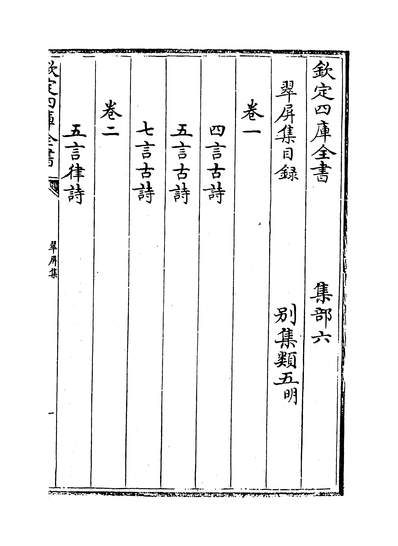 欽定四庫全書　集部六
翠屏集目録　別集類五明
卷一
四言古詩
五言古詩
七言古詩
卷二
五言律詩
欽定四庫全書
翠屏集
一